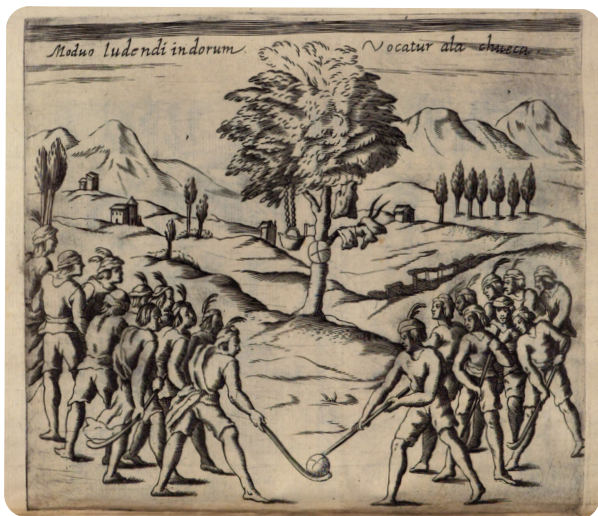 Moduo ludendi indorum. Vocatur ala chueca.